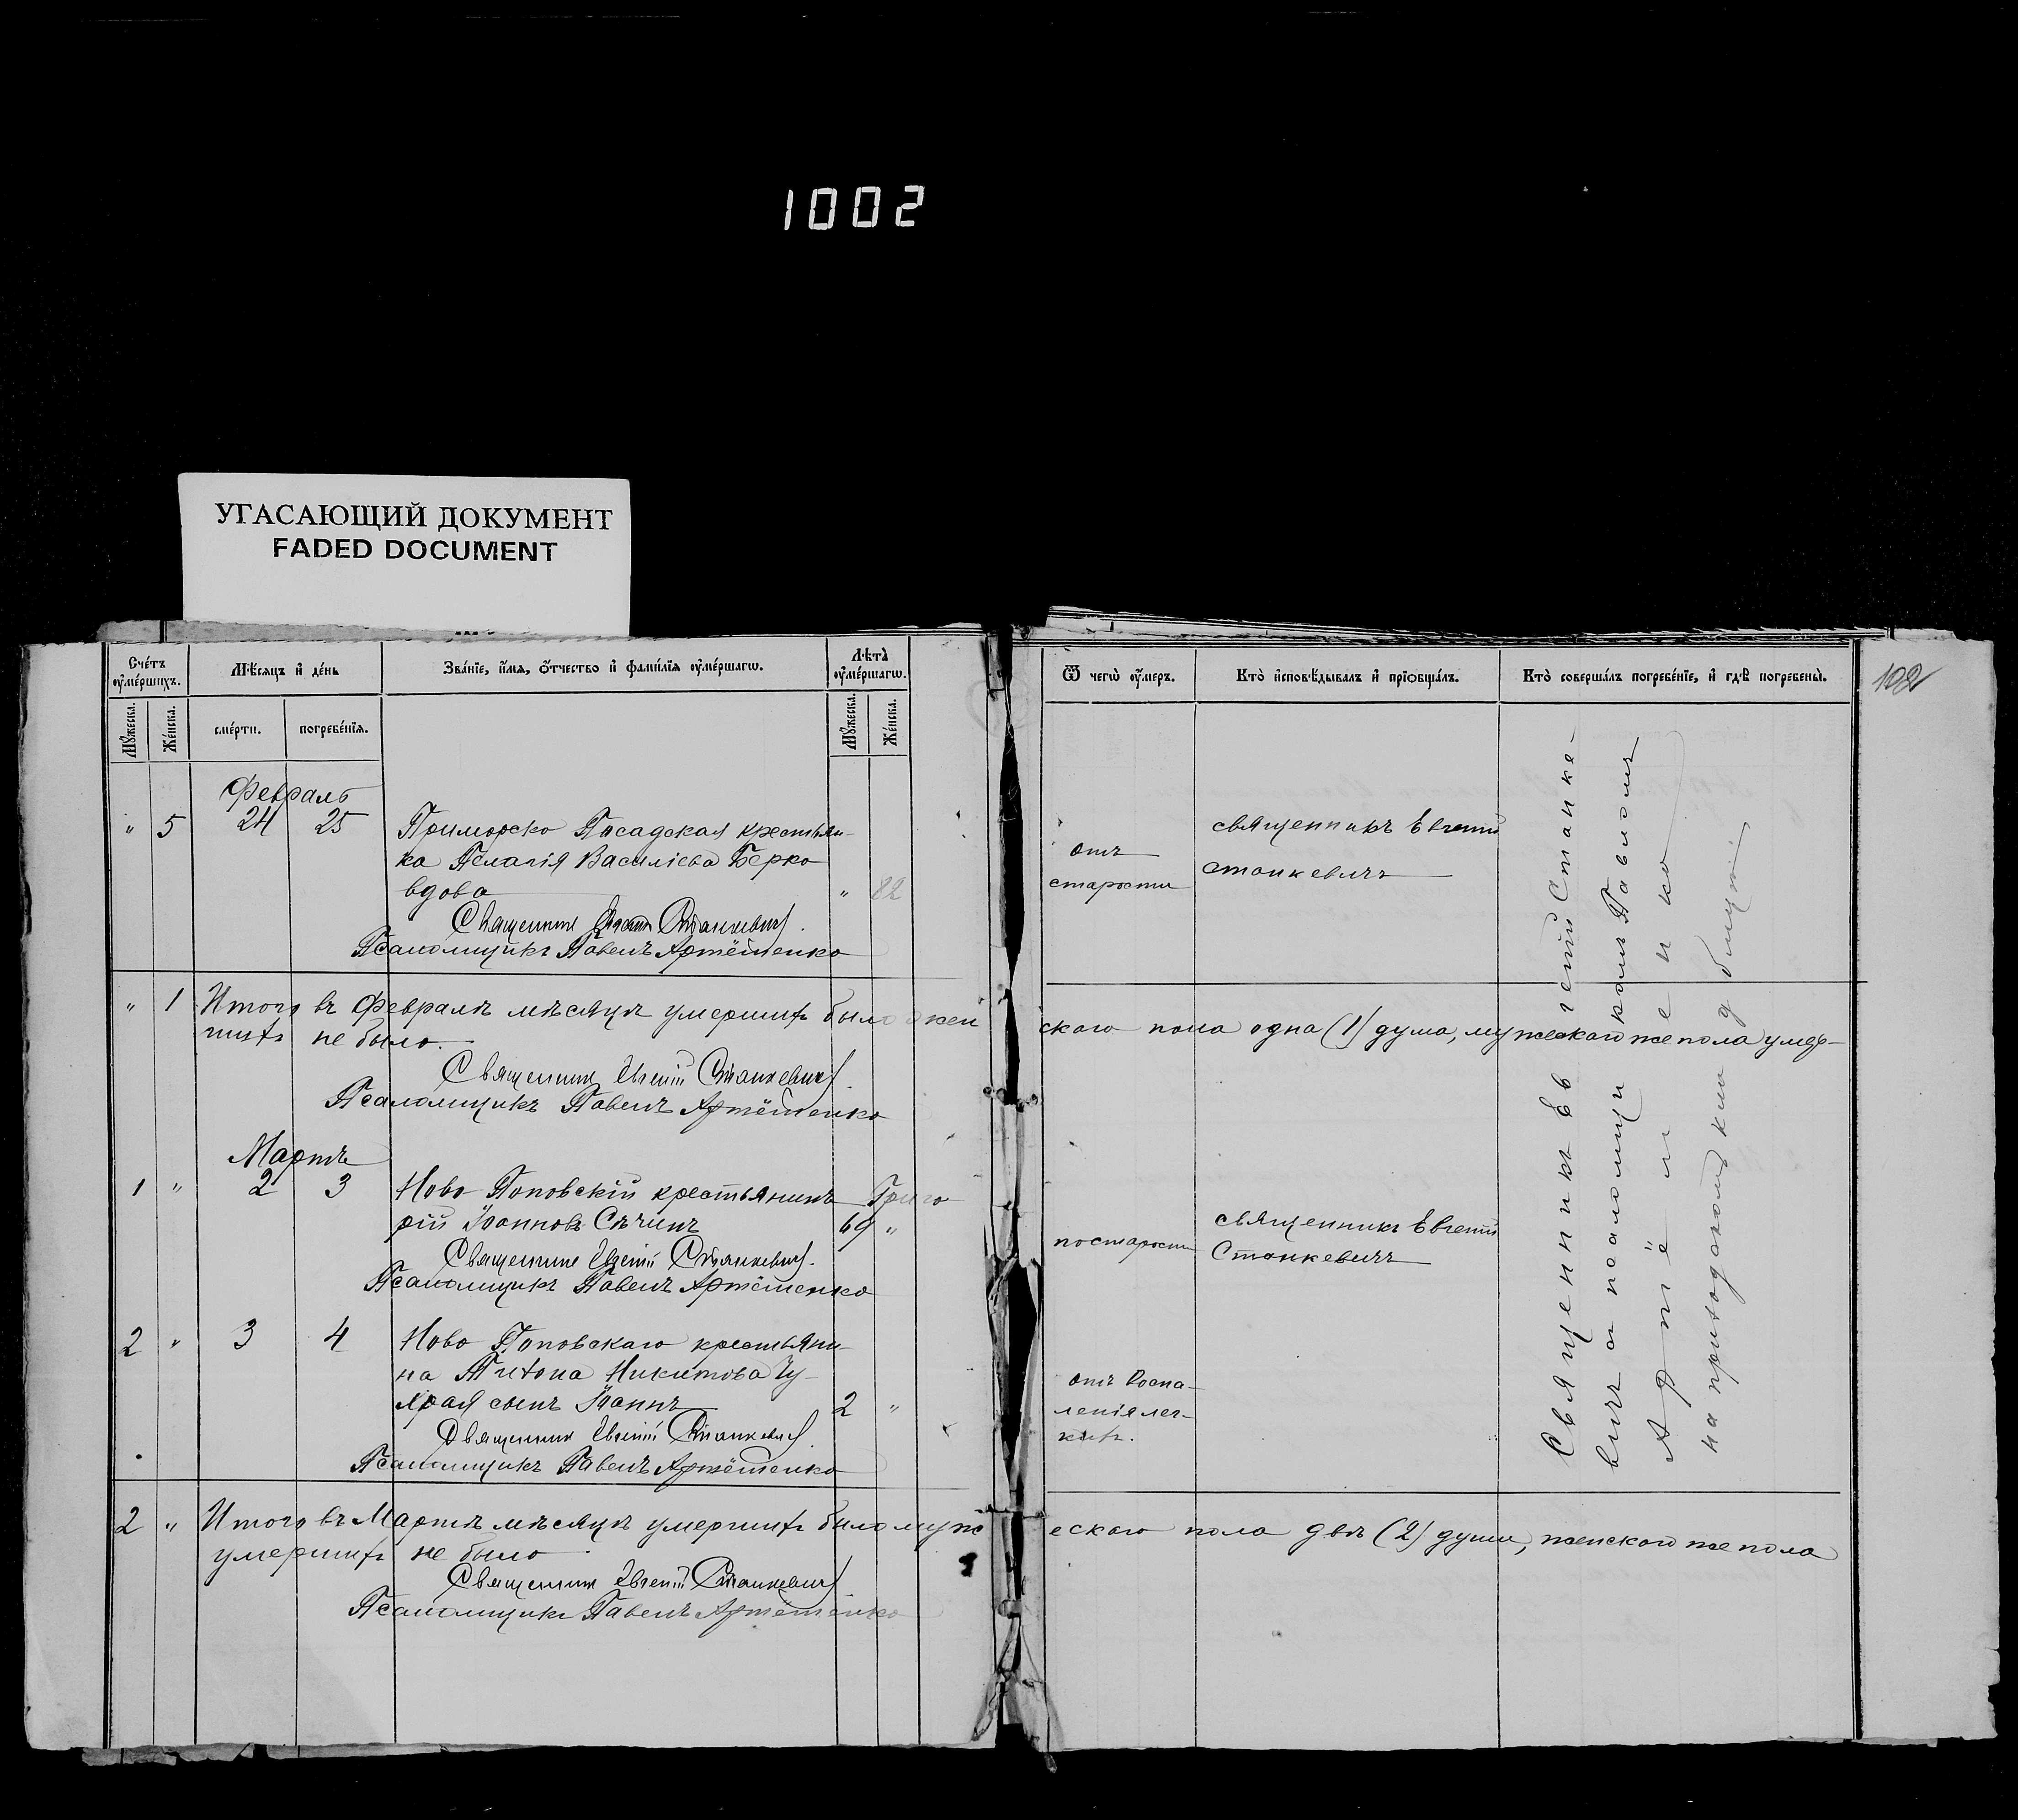 1002
УГАСАЮЩИЙ ДОКУМЕНТ
FADED DOCUMENT
Счетъ ᲂумершихъ.
Мѣсяцъ и день
Званіе, имя, отчество и фамилія ᲂумершагѡ.
Лѣта ᲂумершагѡ.
Ѿ чегѡ ᲂумеръ.
Кто исповѣдывалъ и пріѡбщалъ.
Кто совершалъ погребеніе, и гдѣ погребены.
102
Мужеска.
Женска.
смерти.
погребенія.
Мужеска.
Женска.
Февраль
" 5 24 25 Приморско Посадская крестьян-
ка Пелагія Василіева Берко
вдова " 82
отъ
старости
священникъ Евгеній
Станкевичъ
Священникъ Евгеній Станкевичъ.
Псаломщикъ Павелъ Артёменко
" 1 Итого въ Февралѣ мѣсяцѣ умершихъ было жен
ского пола одна (1) душа, мужескаго же пола умер-
шихъ не было.
Священникъ Евгеній Станкевичъ.
Псаломщикъ Павелъ Артёменко
Мартъ
1 " 2 3 Ново Поповскій крестьянинъ Григо
рій Іоанновъ Сѣчинъ 69 "
по старости
священникъ Евгеній
Станкевичъ
Священникъ Евгеній Станкевичъ.
Псаломщикъ Павелъ Артёменко
2 " 3 4 Ново Поповскаго крестьяни-
на Никитова Чу-
сынъ Іоаннъ 2 "
отъ воспа-
ленія лег-
кихъ.
Священникъ Евгеній Станкевичъ.
Псаломщикъ Павелъ Артёменко
Священникъ Евгеній Станке-
вичъ съ псаломщикомъ Павломъ
Артёменко
на приходскомъ кладбищѣ
2 " Итого въ Мартѣ мѣсяцѣ умершихъ было муж
ескаго пола двѣ (2) души, женскаго же пола
умершихъ не было
Священникъ Евгеній Станкевичъ
Псаломщикъ Павелъ Артёменко